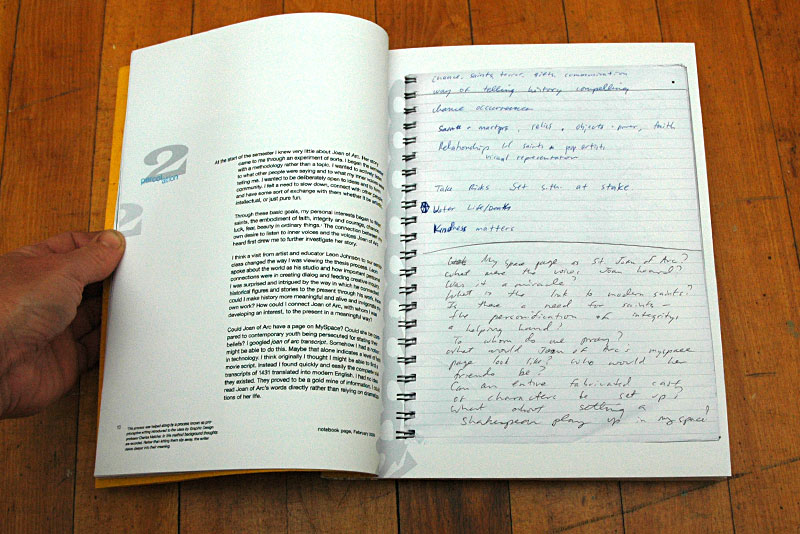 2
perception
2
At the start of the semester I knew very little about Joan of Arc. Her story
came to me through an experiment of sorts. I began the semester
with a methodology rather than a topic. I wanted to actively listen
to what other people were saying and to what my inner voices were
telling me. I wanted to be deliberately open to ideas and to
community. I felt a need to slow down, connect with other people
and have some sort of exchange with them whether it be
intellectual, or just pure fun.
Through these basic goals, my personal interests began to
saints, the embodiment of faith, integrity and courage, chance,
luck, fear, beauty in ordinary things. The connection between my
own desire to listen to inner voices and the voices Joan of Arc
heard first drew me to further investigate her story.
I think a visit from artist and educator Leon Johnson to our
class changed the way I was viewing the thesis process. Leon
spoke about the world as his studio and how important personal
connections were in creating dialog and feeding creative
I was surprised and intrigued by the way in which he connected
historical figures and stories to the present through his work.
own work? How could I connect Joan of Arc, with whom I was
could I make history more meaningful and alive and invigorate my
developing an interest, to the present in a meaningful way?
Could Joan of Arc have a page on MySpace? Could she be com-
pared to contemporary youth being persecuted for stating their
beliefs? I googled joan of arc transcript. Somehow I had a
might be able to do this. Maybe that alone indicates a level of faith
in technology. I think originally I thought I might be able to find a
movie script. Instead I found quickly and easily the complete
transcripts of 1431 translated into modern English. I had no idea
they existed. They proved to be a gold mine of information. I could
read Joan of Arc's words directly rather than relying on
tions of her life.
notebook page, February
chance, saints, terror, faith, communication
way of telling history compelling
chance occurrences
saints + martyrs, relics, objects, power, faith
Relationships b/t saints & pop artists
visual representation
Take Risks Set s.th. at stake
Water Life/Death
Kindness matters
My space page on St. Joan of Arc?
What were the voices Joan heard?
Was it a miracle?
What is the link to modern saints?
Is there a need for saints —
the personification of integrity,
a helping hand?
To whom do we pray?
What would Joan of Arc's myspace
page look like? Who would her
friends be?
Can an entire fabricated cast
of characters be set up?
What about setting a
Shakespeare play up in my space?